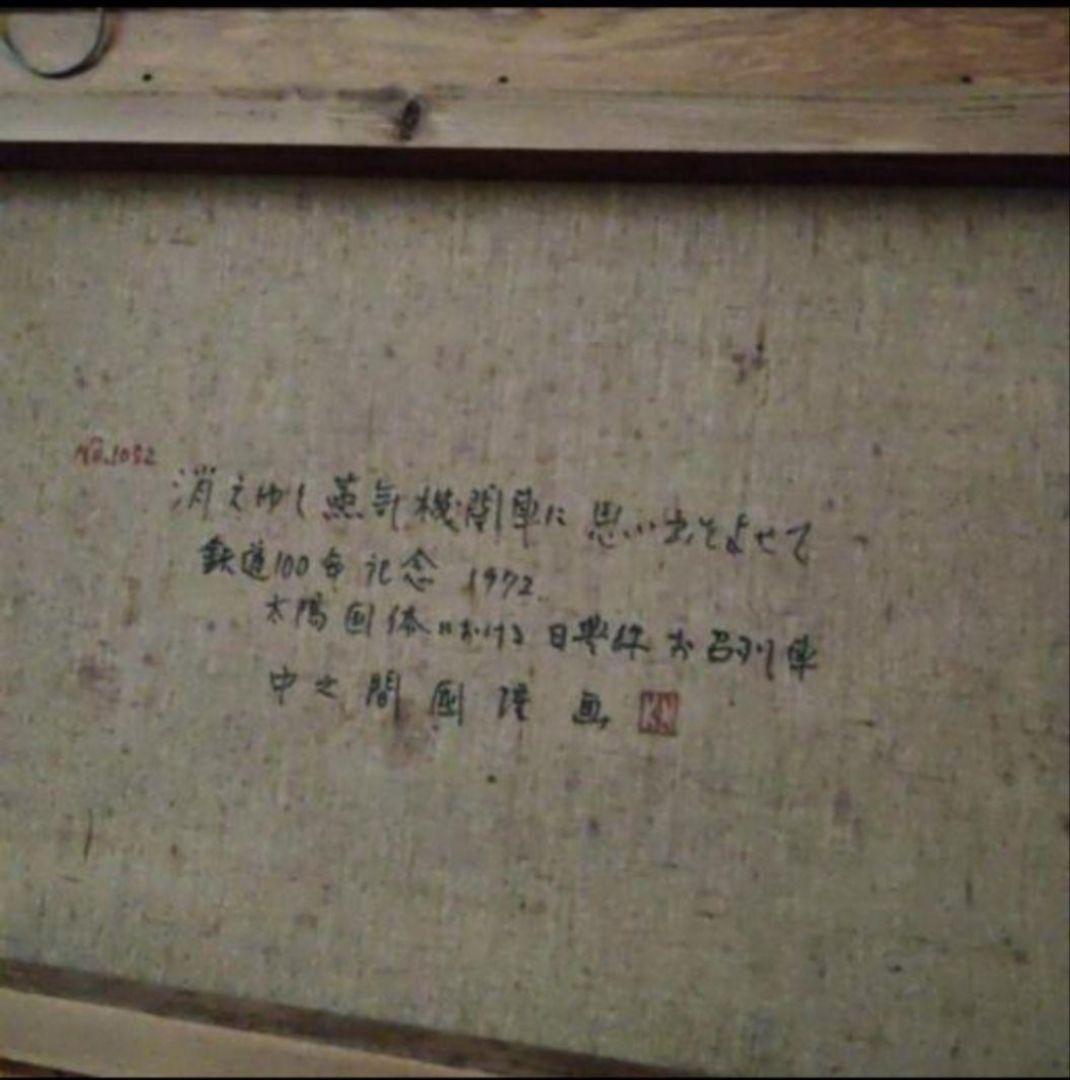 No.1052
消えゆく蒸気機関車に思い出をよせて
鉄道100年記念 1972.
太陽国体における日豊線お召列車
中之間國隆画
KN